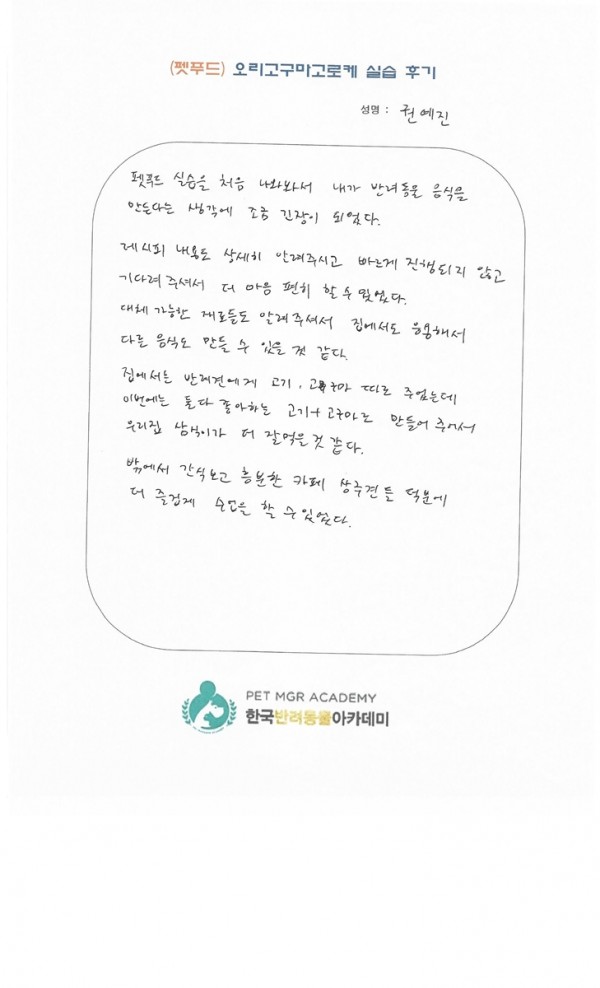 (펫푸드) 오리고구마고로케 실습 후기
성명 : 권예진
펫푸드 실습을 처음 나와봐서 내가 반려동물 음식을
만든다는 생각에 조금 긴장이 되었다.
레시피 내용도 상세히 알려주시고 빠르게 진행되지 않고
기다려 주셔서 더 마음 편히 할 수 있었다.
대체 가능한 재료들도 알려주셔서 집에서도 응용해서
다른 음식도 만들 수 있을 것 같다.
집에서는 반려견에게 고기, 고구마 따로 주었는데
이번에는 둘다 좋아하는 고기+고구마로 만들어 주어서
우리집 삼식이가 더 잘먹을 것 같다.
밖에서 간식보고 흥분한 카페 상주견들 덕분에
더 즐겁게 수업을 할 수 있었다.
PET MGR ACADEMY
한국반려동물아카데미